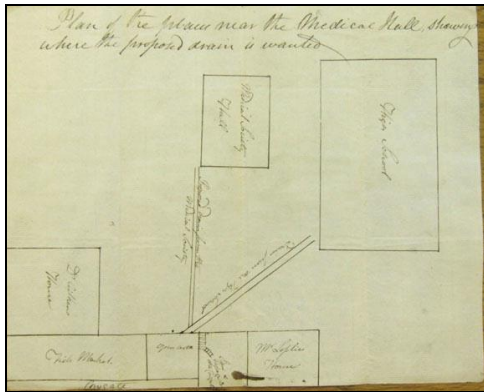 Plan of the places near the Medical Hall, shewing
where the proposed drain is wanted
Medical Society
Hall
High School
Proposed Drain from the
Medical Society
Drain from the High School
House
Fish Market
Open area
Mr Leslies
House
Cowgate